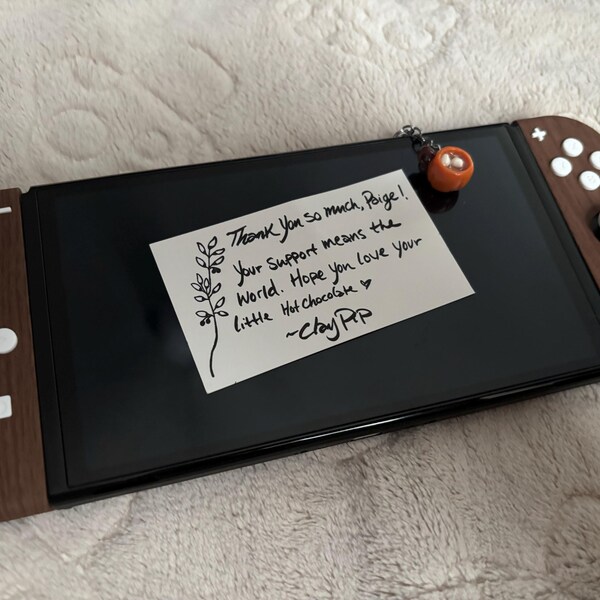 Thank you so much, Paige!
Your support means the
world. Hope you love your
little Hot Chocolate ♥
~ClayPip